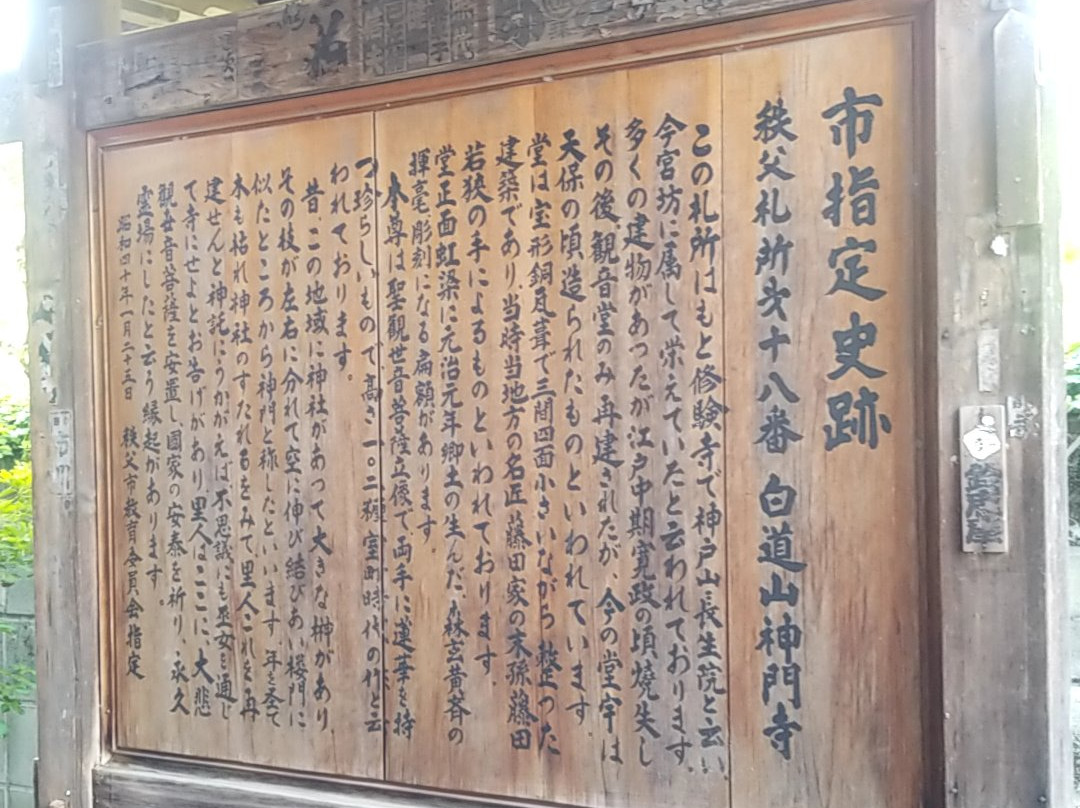 市指定史跡
秩父札所第十八番 白道山神門寺
この札所はもと修験寺で神戸山長生院と云い、
今宮坊に属して栄えていたと云われております。
多くの建物があったが江戸中期寛政の頃焼失し
その後観音堂のみ再建されたが、今の堂宇は
天保の頃造られたものといわれています。
堂は宝形銅瓦葺で三間四面小さいながら整った
建築であり、当時当地方の名匠 藤田家の末孫藤田
若狭の手によるものといわれております。
堂正面虹梁に元治元年郷土の生んだ、森玄黄斉の
揮毫彫刻になる扁額があります。
本尊は聖観世音菩薩立像で、両手に蓮華を持
つ珍らしいもので、高さ一〇二糎 室町時代の作と云
われております。
昔、この地域に神社があって大きな榊があり、
その枝が左右に分れて空に伸び結びあい、楼門に
似たところから神門と称したといいます。年を交て
木も枯れ神社のすたれるをみて里人これを再
建せんと神託にうかがえば不思議にも巫女を通じ
て寺にせよとお告げがあり里人はここに、大悲
観世音菩薩を安置し、國家の安泰を祈り、永久
霊場にしたと云う縁起があります。
昭和四十年一月二十五日 秩父市教育委員会指定